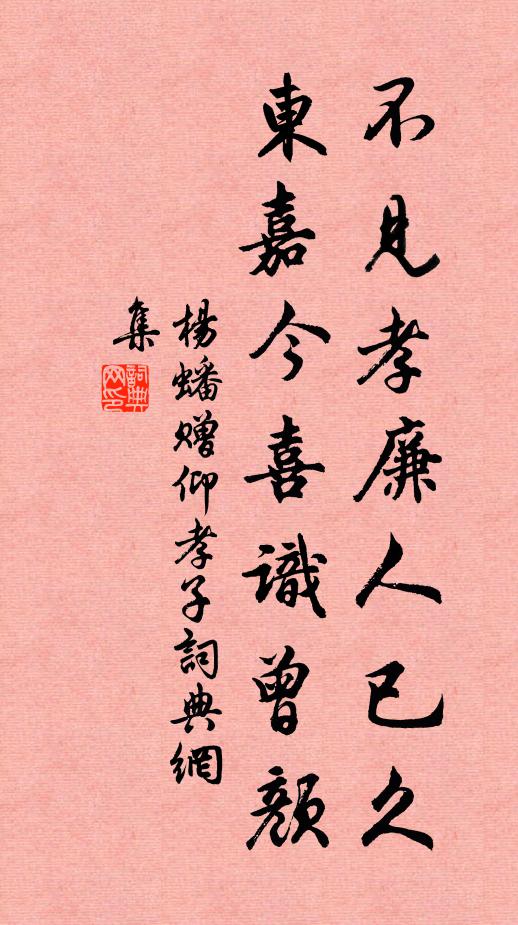 不見孝廉人已久
東嘉今喜識曾顏
楊蟠贈仰孝子詞典網
集
詞典
网印